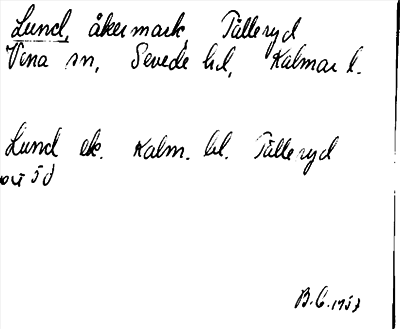 Lund, åkermark, Tälleryd
Vena sn, Sevede hd, Kalmar l.
Lund ek. Kalm. bl. Tälleryd
5d
B.C. 1953